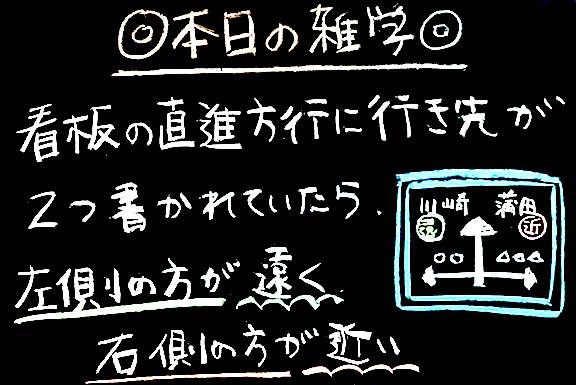 ◎本日の雑学◎
看板の直進方行に行き先が
2つ書かれていたら、
左側の方が遠く
右側の方が近い
川崎 蒲田
遠 近
○○ △△△